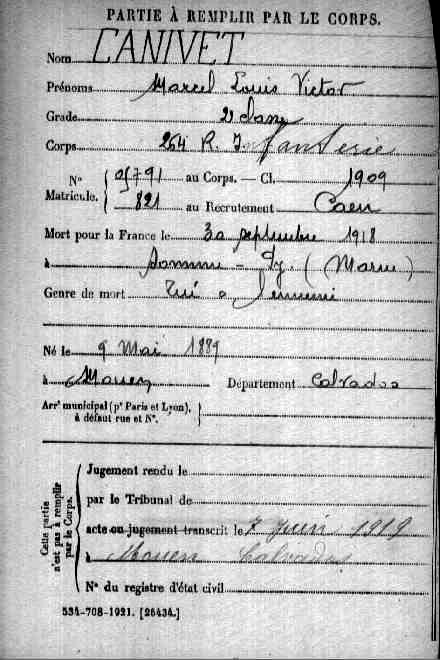 PARTIE À REMPLIR PAR LE CORPS.
Nom CANIVET
Prénoms Marcel Louis Victor
Grade 2e classe
Corps 254 R. Infanterie
N° Matricule. { 25791 au Corps. — Cl. 1909
821 au Recrutement Caen
Mort pour la France le 30 septembre 1918
à Somme - Py. (Marne)
Genre de mort Tué à l'ennemi
Né le 9 Mai 1889
à Mouen Département Calvados
Arr' municipal (p' Paris et Lyon), à défaut rue et N°. }
Cette partie n'est pas à remplir par le Corps.
Jugement rendu le
par le Tribunal de
acte ou jugement transcrit le 7 Juin 1919
à Mouen Calvados
N° du registre d'état civil
534-708-1921. [26434.]